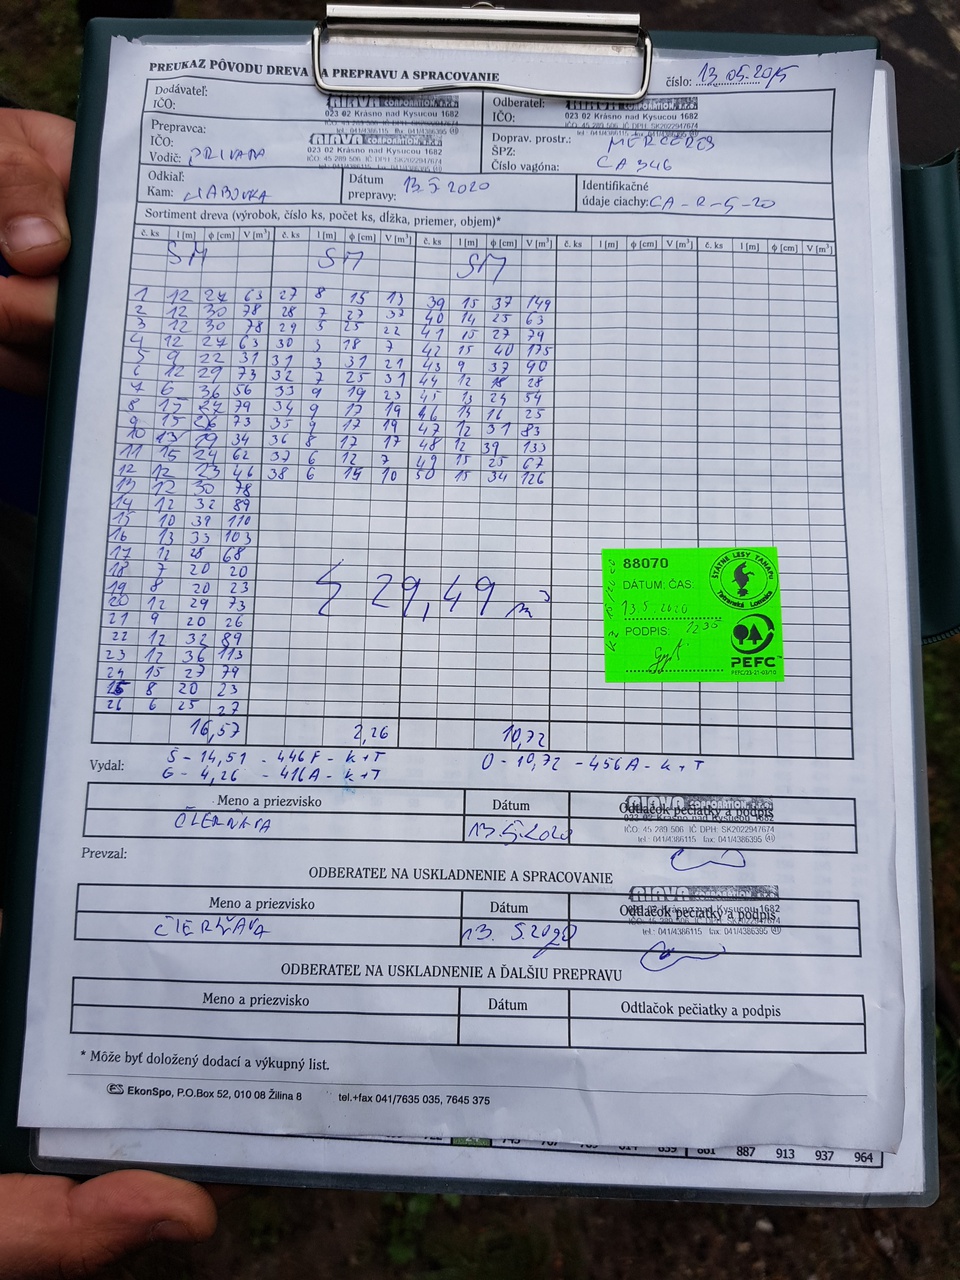 PREUKAZ PÔVODU DREVA NA PREPRAVU A SPRACOVANIE
číslo: 13.05.2015
Dodávateľ:
IČO:
CORPORATION, s.r.o.
023 02 Krásno nad Kysucou 1682
Odberateľ:
IČO:
CORPORATION, s.r.o.
023 02 Krásno nad Kysucou 1682
IČO: 45 289 506 IČ DPH: SK2022947674
Prepravca:
IČO:
Vodič:
CORPORATION, s.r.o.
023 02 Krásno nad Kysucou 1682
IČO: 45 289 506 IČ DPH: SK2022947674
Doprav. prostr.: MERCEDES
ŠPZ:
Číslo vagóna: CA 346
Odkiaľ:
Kam:
Dátum
prepravy: 13.5.2020
Identifikačné
údaje ciachy: CA-R-5-20
Sortiment dreva (výrobok, číslo ks, počet ks, dĺžka, priemer, objem)*
č. ks l [m] ϕ [cm] V [m³] č. ks l [m] ϕ [cm] V [m³] č. ks l [m] ϕ [cm] V [m³] č. ks l [m] ϕ [cm] V [m³] č. ks l [m] ϕ [cm] V [m³]
SM SM SM
1 12 27 63 27 8 15 13 39 15 37 149
2 12 30 78 28 7 27 37 40 14 25 63
3 12 30 78 29 5 25 22 41 15 27 79
4 12 27 63 30 3 18 7 42 15 40 175
5 9 22 31 31 3 31 21 43 9 37 90
6 12 29 73 32 7 25 31 44 12 18 28
7 6 36 56 33 9 19 23 45 13 24 54
8 15 27 79 34 9 17 19 46 14 16 25
9 15 26 73 35 9 17 19 47 12 31 83
10 13 19 34 36 8 17 17 48 12 39 133
11 15 24 62 37 6 12 7 49 15 25 67
12 12 23 46 38 6 15 10 50 15 34 126
13 12 30 78
14 12 32 89
15 10 39 110
16 13 33 103
17 12 28 68
18 7 20 20
19 8 20 23
20 12 29 73
21 9 20 26
22 12 32 89
23 12 36 113
24 15 27 79
25 8 20 23
26 6 25 27
29,49 m³
88070
DÁTUM, ČAS:
13.5.2020
12 35
PODPIS:
ŠTÁTNE LESY TANAPU
Tatranská Lomnica
PEFC
PEFC/23-21-03/10
16,57 2,26 10,72
Vydal:
Š - 14,51 - 446F - K+T
G - 4,26 - 416A - K+T
O - 10,72 - 456A - K+T
Meno a priezvisko
Dátum
Odtlačok pečiatky a podpis
13.5.2020
CORPORATION, s.r.o.
023 02 Krásno nad Kysucou 1682
IČO: 45 289 506 IČ DPH: SK2022947674
tel.: 041/4386115 fax: 041/4386395
Prevzal:
ODBERATEĽ NA USKLADNENIE A SPRACOVANIE
Meno a priezvisko
Dátum
Odtlačok pečiatky a podpis
13. 5.2020
CORPORATION, s.r.o.
023 02 Krásno nad Kysucou 1682
IČO: 45 289 506 IČ DPH: SK2022947674
tel.: 041/4386115 fax: 041/4386395
ODBERATEĽ NA USKLADNENIE A ĎALŠIU PREPRAVU
Meno a priezvisko
Dátum
Odtlačok pečiatky a podpis
* Môže byť doložený dodací a výkupný list.
ES EkonSpo, P.O.Box 52, 010 08 Žilina 8
tel.+fax 041/7635 035, 7645 375
887 913 937 964